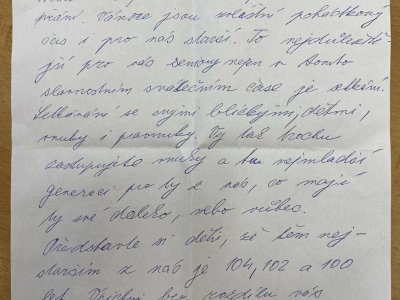 přání. Vánoce jsou zvláštní pohádkový
čas i pro nás starší. To nejdůležitě
jší pro nás seniory nejen v tomto
slavnostním svátečním čase je setkání.
Setkávání se svými blízkými, dětmi,
vnuky i pravnuky. Vy tak trochu
zastupujete vnuky a tu nejmladší
generaci pro ty z nás, co mají
ty své daleko, nebo vůbec.
Představte si děti, že těm nej-
starším z nás je 104, 102 a 100
let. Všichni bez rozdílu vás